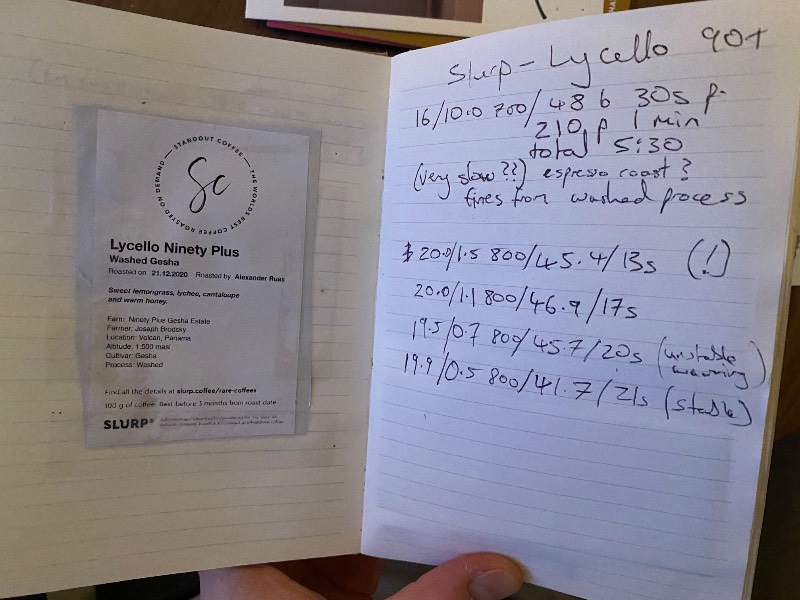 STANDOUT COFFEE — THE WORLDS BEST COFFEE ROASTED ON DEMAND
Sc
Lycello Ninety Plus
Washed Gesha
Roasted on 21.12.2020 Roasted by Alexander Ruas
Sweet lemongrass, lychee, cantaloupe
and warm honey.
Farm: Ninety Plus Gesha Estate
Farmer: Joseph Brodsky
Location: Volcan, Panama
Altitude: 1.500 masl
Cultivar: Gesha
Process: Washed
Find all the details at slurp.coffee/rare-coffees
100 g of coffee. Best before 3 months from roast date
SLURP®
Slurp - Lycello 90+
16/10.0 700/48 b 30s p.
210 p 1 min
total 5:30
(very slow??) espresso roast?
fines from washed process
20.0/1.5 800/45.4/13s (!)
20.0/1.1 800/46.9/17s
19.5/0.7 800/45.7/20s (unstable
19.9/0.5 800/41.7/21s (stable)